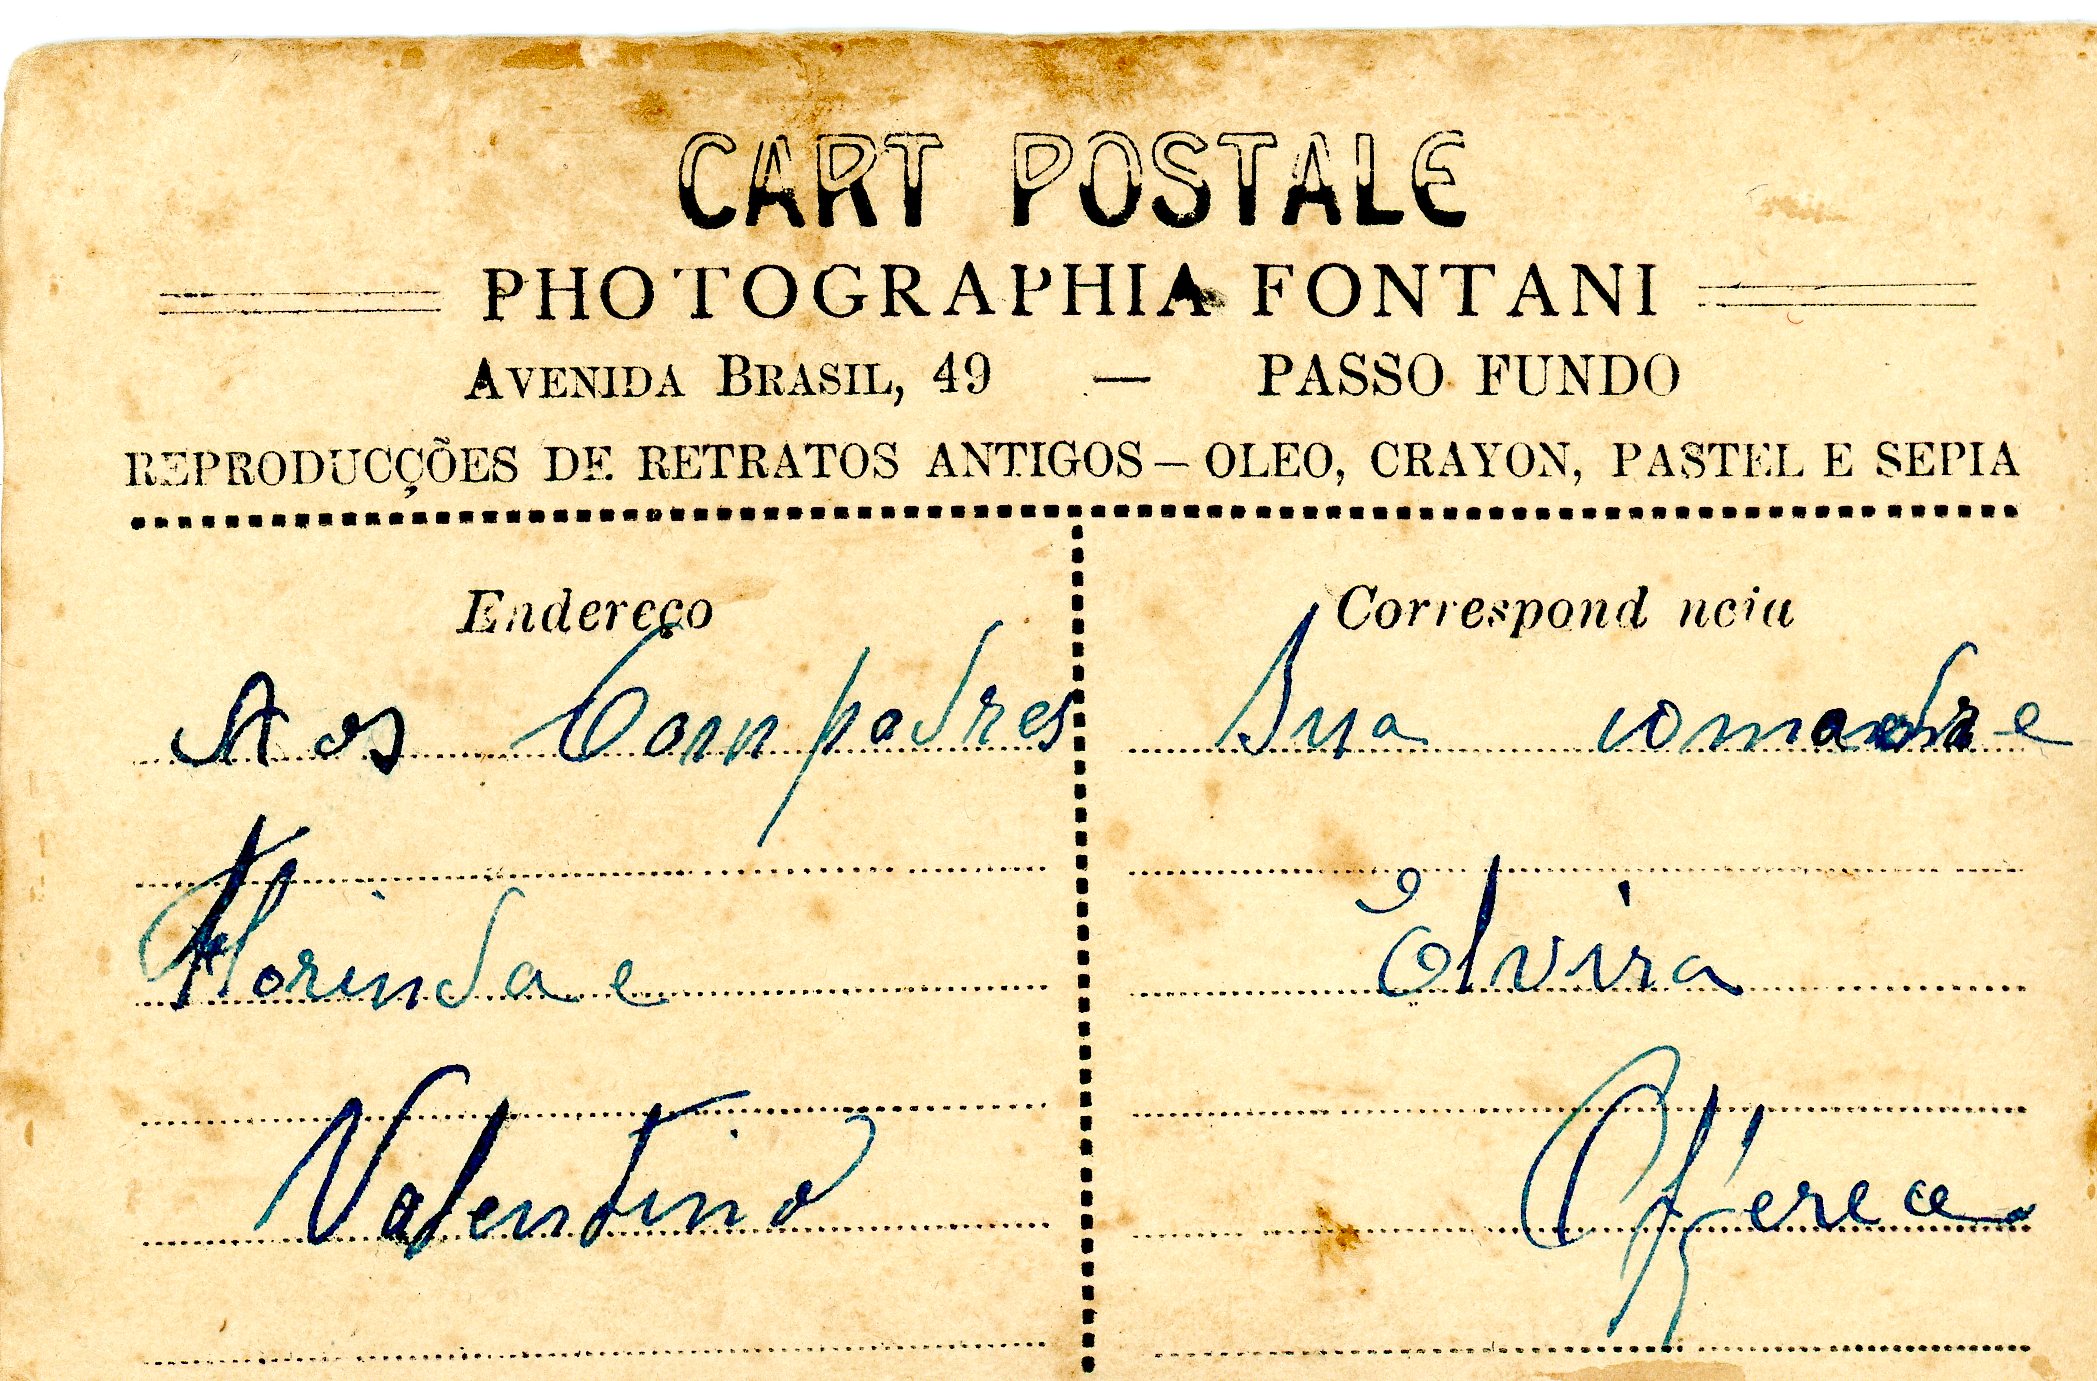 CART POSTALE
PHOTOGRAPHIA FONTANI
AVENIDA BRASIL, 49 — PASSO FUNDO
REPRODUCÇÕES DE RETRATOS ANTIGOS – OLEO, CRAYON, PASTEL E SEPIA
Endereço
Aos Compadres
Florinda e
Valentino
Correspond ncia
Sua comadre
Elvira
Oferece